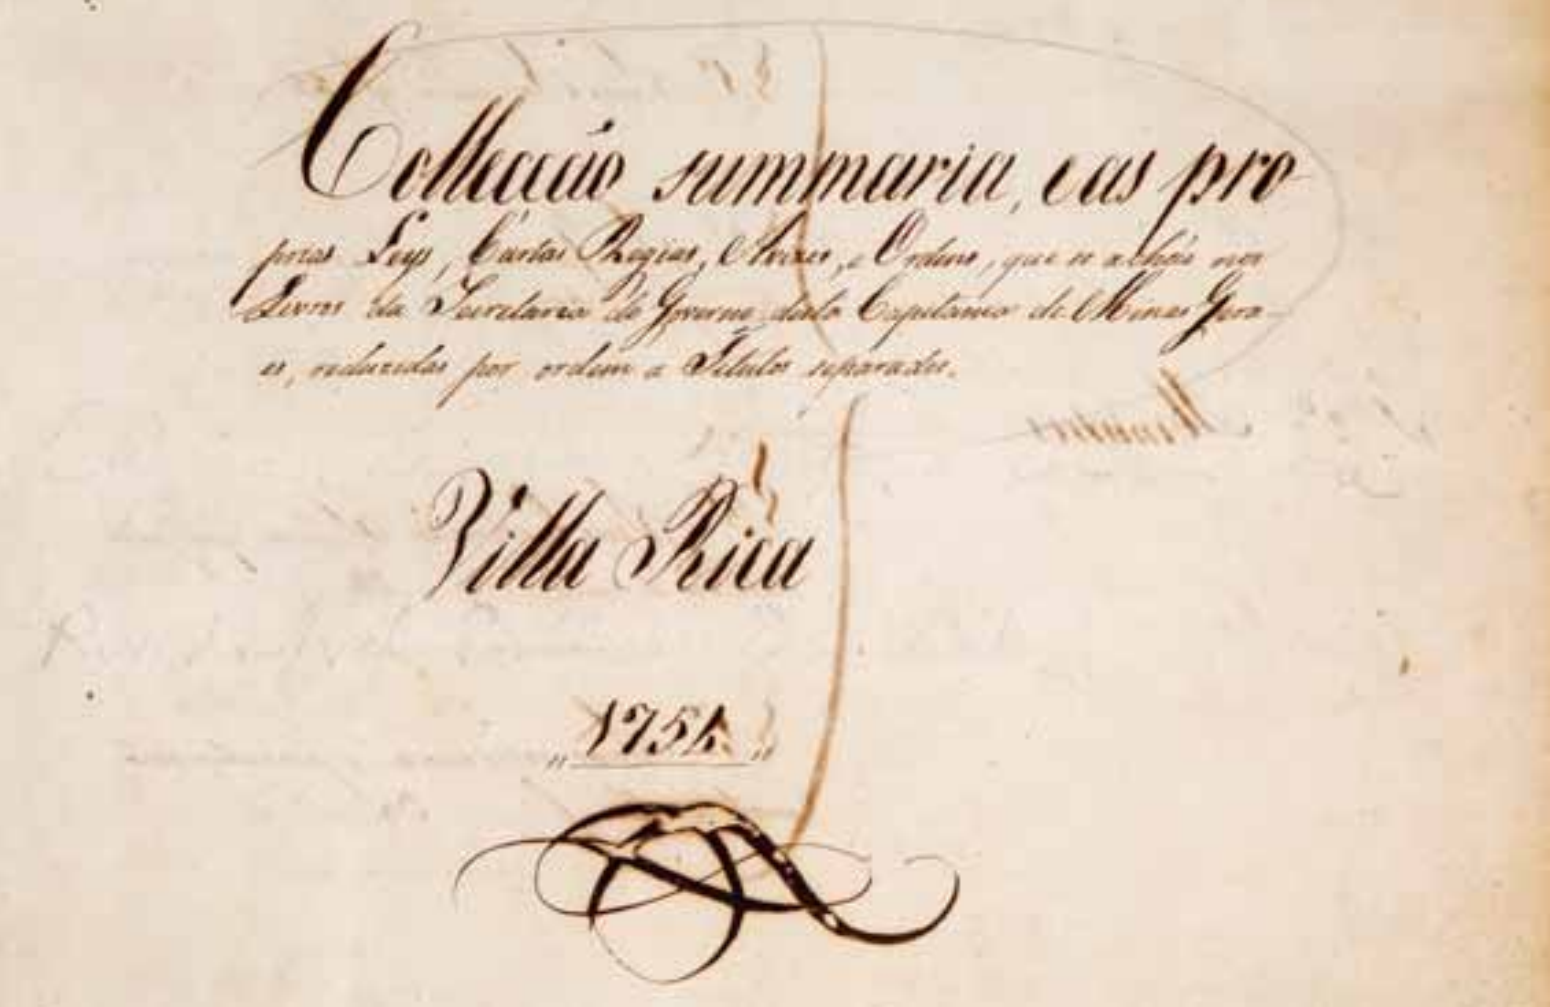 Collecção summaria, e as pro
prias Leys, Cartas Regias, Avizos, e Ordens, que se achão nos
Livros da Secretaria do Governo desta Capitania de Minas Gera-
es, reduzidas por ordem a Titulos separados.
Villa Rica
„ 1754 „